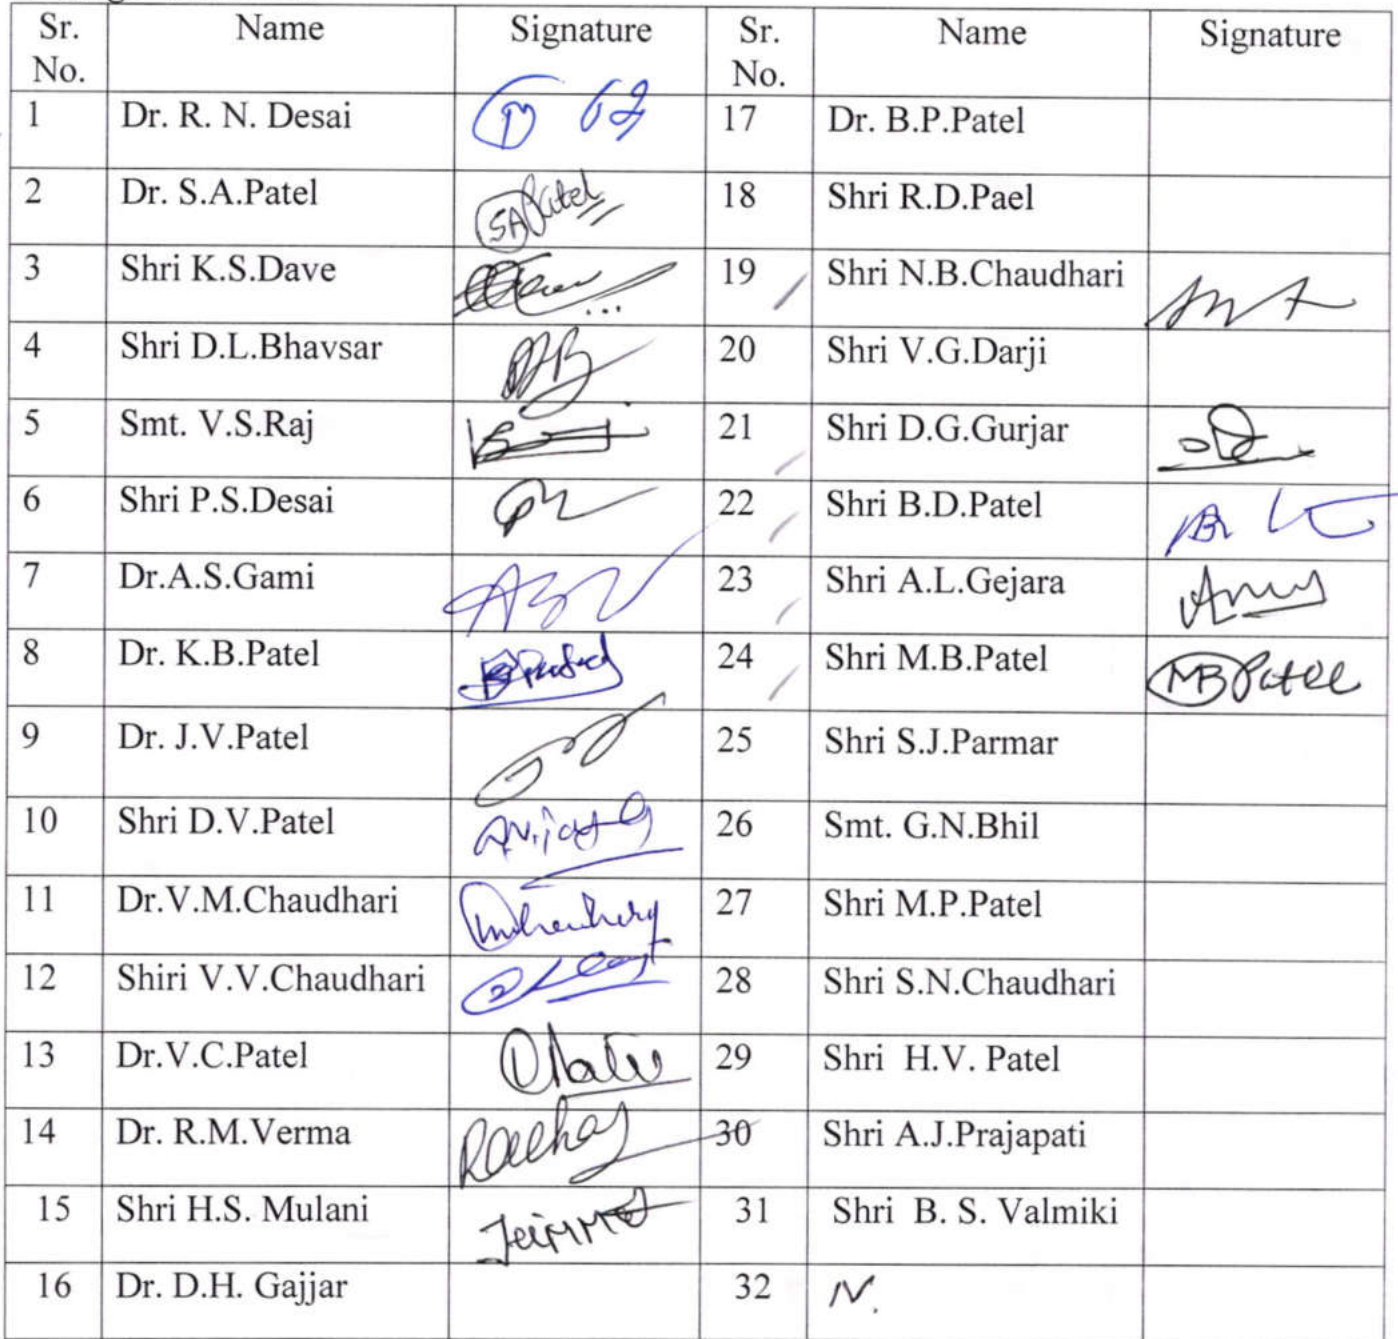 Sr. No. Name Signature Sr. No. Name Signature
1 Dr. R. N. Desai 17 Dr. B.P.Patel
2 Dr. S.A.Patel SAPatel 18 Shri R.D.Pael
3 Shri K.S.Dave 19 Shri N.B.Chaudhari
4 Shri D.L.Bhavsar 20 Shri V.G.Darji
5 Smt. V.S.Raj 21 Shri D.G.Gurjar
6 Shri P.S.Desai 22 Shri B.D.Patel
7 Dr.A.S.Gami 23 Shri A.L.Gejara
8 Dr. K.B.Patel 24 Shri M.B.Patel MBPatel
9 Dr. J.V.Patel 25 Shri S.J.Parmar
10 Shri D.V.Patel 26 Smt. G.N.Bhil
11 Dr.V.M.Chaudhari 27 Shri M.P.Patel
12 Shiri V.V.Chaudhari 28 Shri S.N.Chaudhari
13 Dr.V.C.Patel 29 Shri H.V. Patel
14 Dr. R.M.Verma 30 Shri A.J.Prajapati
15 Shri H.S. Mulani 31 Shri B. S. Valmiki
16 Dr. D.H. Gajjar 32 N.